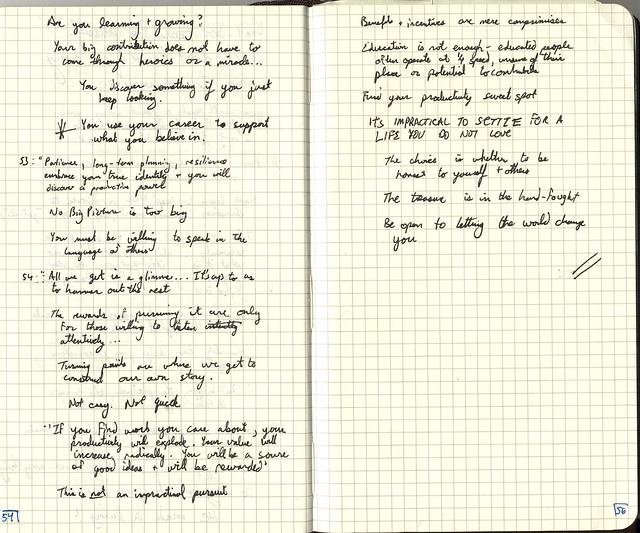 Are you learning + growing?
Your big contribution does not have to
come through heroics or a miracle...
You discover something if you just
keep looking.
You use your career to support
what you believe in.
53: "Patience, long-term planning, resilience
embrace your true identity + you will
discover a productive power
No Big Picture is too big
You must be willing to speak in the
language of others
54: "All we get is a glimpse... It's up to us
to hammer out the rest
The rewards of pursuing it are only
for those willing to listen intently
attentively...
Turning points are where we get to
construct our own story.
Not easy. Not quick
"If you find work you care about, your
productivity will explode. Your value will
increase radically. You will be a source
of good ideas + will be rewarded"
This is not an impractical pursuit
54
Benefits + incentives are mere compromises
Education is not enough - educated people
often operate at 1/4 speed, unsure of their
place or potential to contribute
Find your productivity sweet spot
IT'S IMPRACTICAL TO SETTLE FOR A
LIFE YOU DO NOT LOVE
The choice is whether to be
honest to yourself + others
The treasure is in the hard-fought
Be open to letting the world change
you
56